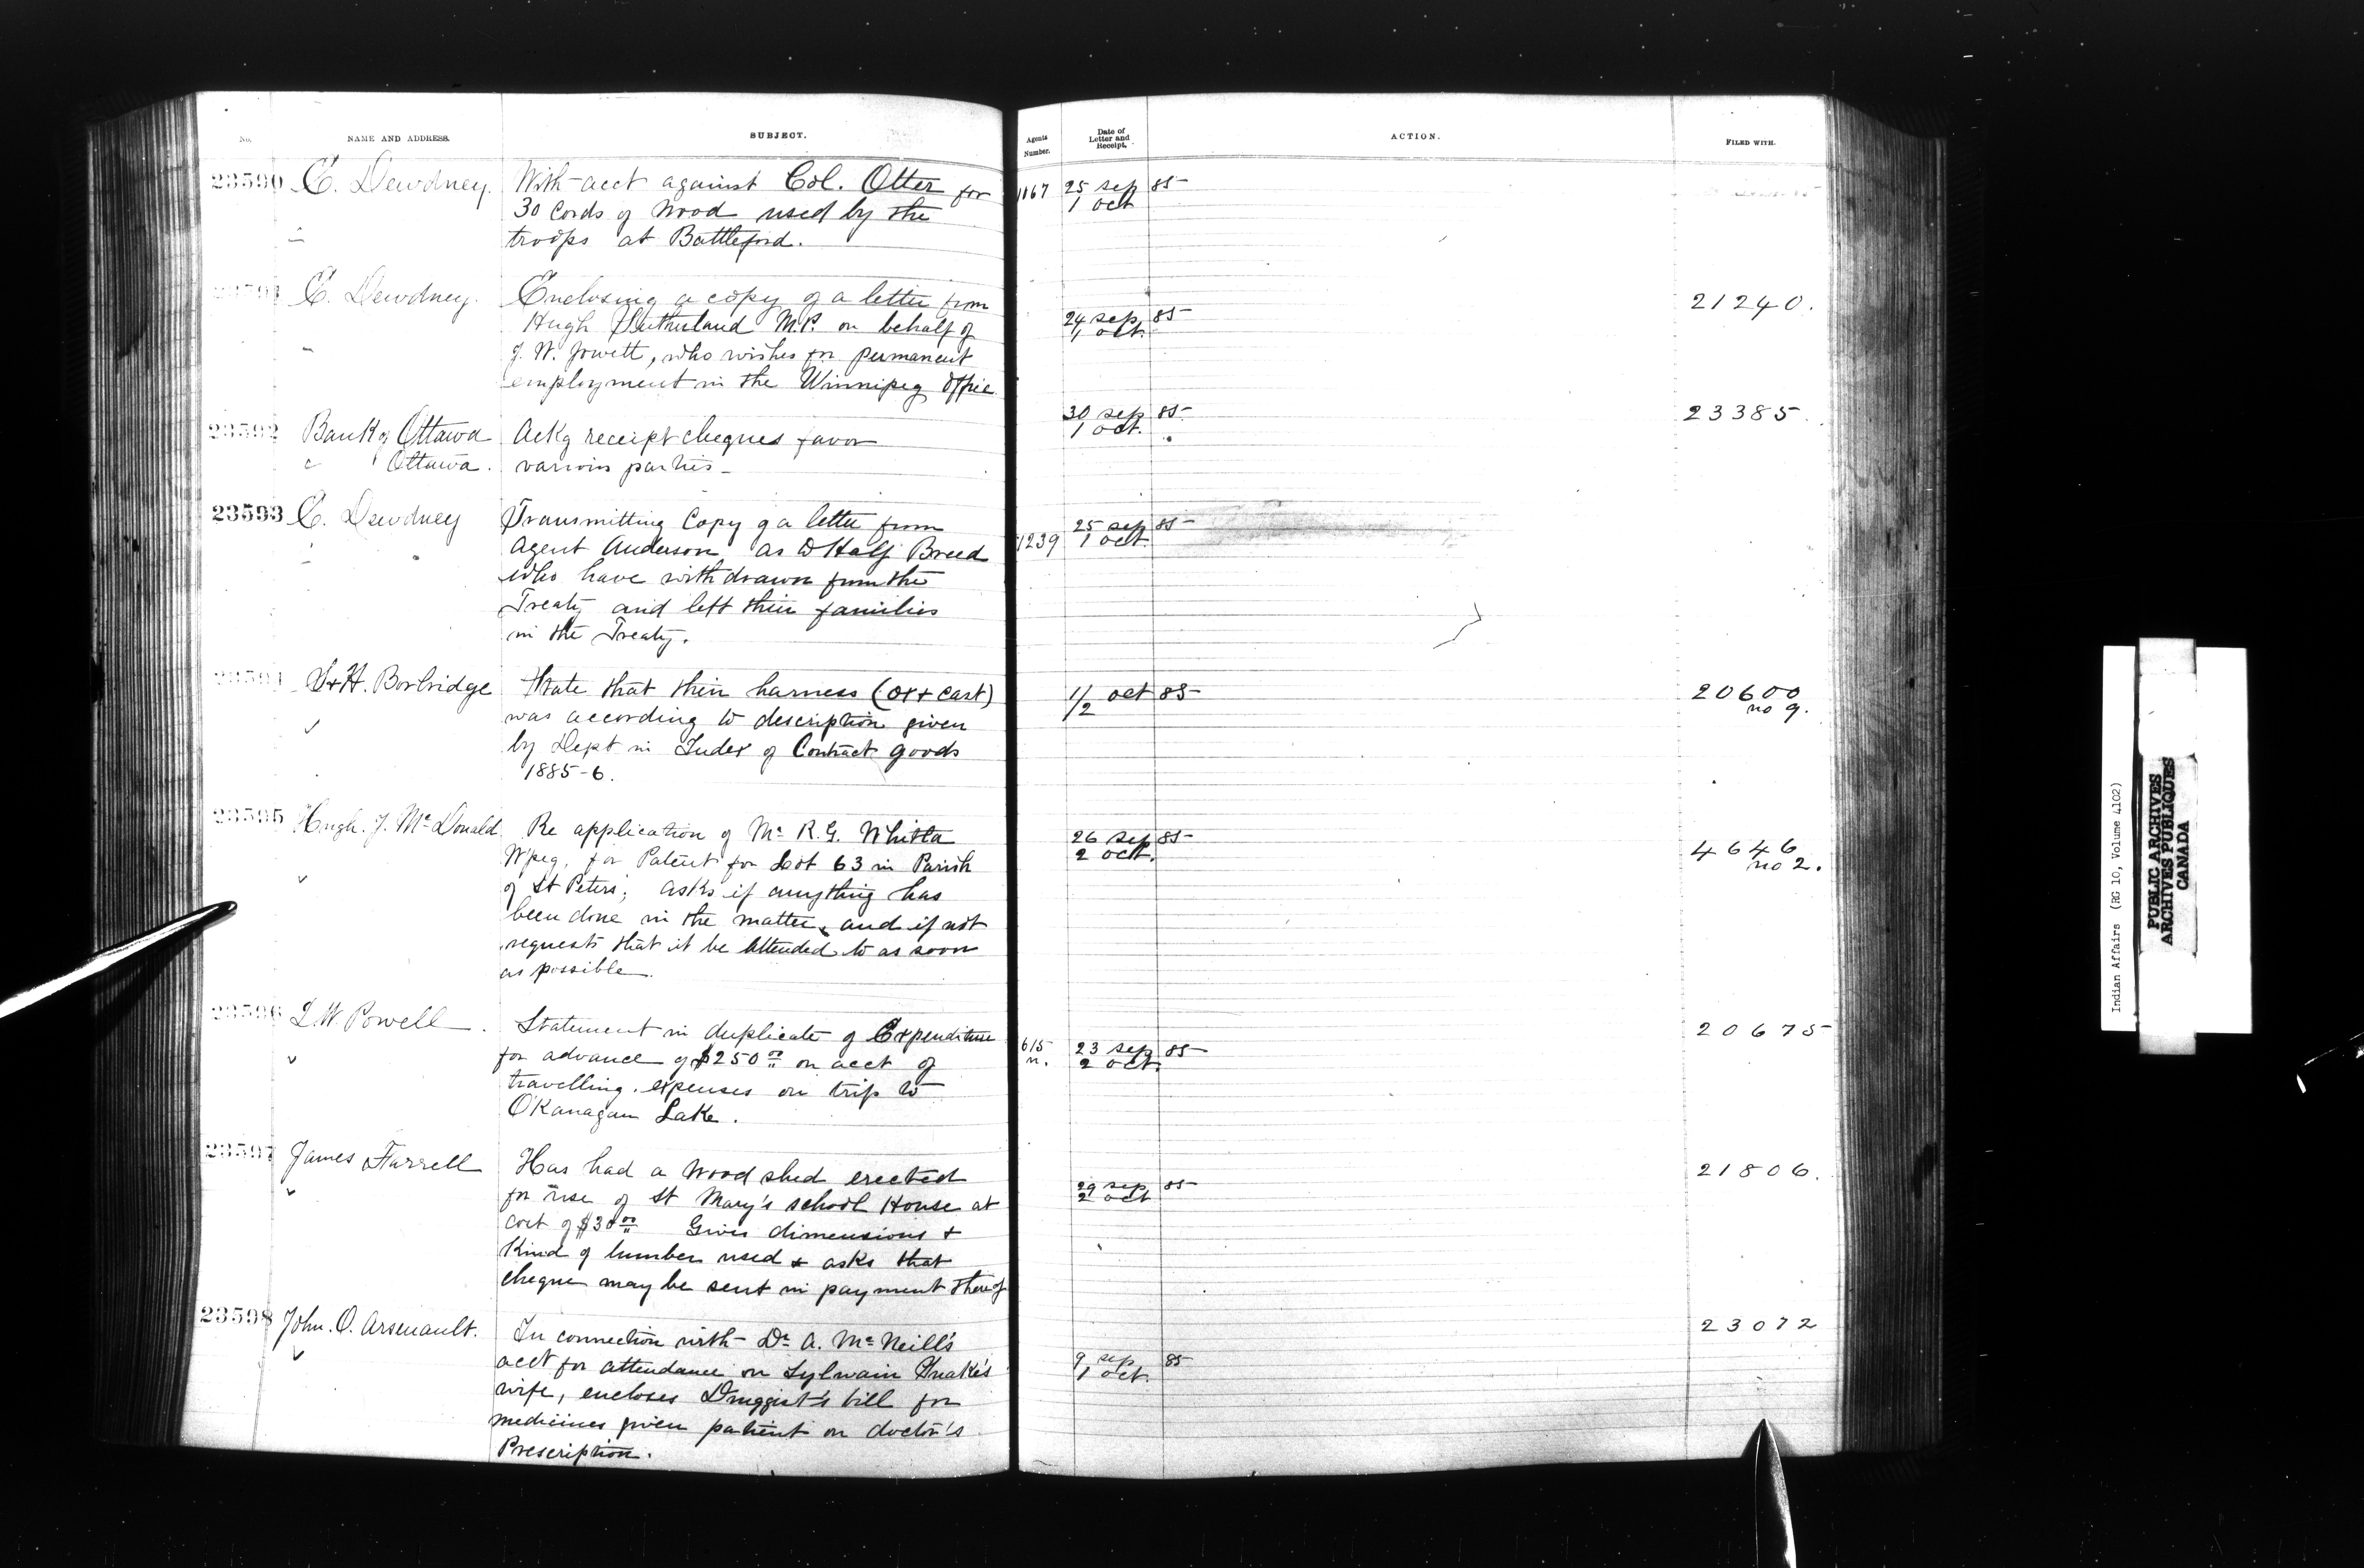 No.
NAME AND ADDRESS.
SUBJECT.
Agents Number.
Date of Letter and Receipt.
ACTION.
FILED WITH.
23590 E. Dewdney. With acct against Col. Otter for 1167 25 sep 85
30 Cords of Wood used by the 1 oct
troops at Battleford.
23591 E. Dewdney. Enclosing a copy of a letter from 21240.
Hugh Sutherland M.P. on behalf of 24 sep 85
J. W. Jowett, who wishes for permanent 1 oct.
employment in the Winnipeg Office
23592 Bank of Ottawa Ackg receipt cheques favor 30 sep 85 23385.
Ottawa. various parties 1 oct.
23593 E. Dewdney Transmitting Copy of a letter from 25 sep 85
Agent Anderson, as to Half Breed 1239 1 oct.
who have withdrawn from the
Treaty and left their families
in the Treaty.
23594 S & H. Borbridge State that their harness (ox & cart) 1/2 oct 85 20600
was according to description given no 9.
by Dept in Index of Contract goods
1885-6.
23595 Hugh. J. McDonald Re application of Mr R. G. Whitla 26 sep 85 4646
W'peg, for Patent for Lot 63 in Parish 2 oct. no 2.
of St Peters; asks if anything has
been done in the matter, and if not
requests that it be attended to as soon
as possible.
23596 I. W. Powell. Statement in duplicate of Expenditure 615 23 sep 85 20675
for advance of $250 00 on acct of n. 2 oct.
travelling expenses on trip to
O'Kanagan Lake.
23597 James Farrell Has had a wood shed erected 29 sep 85 21806.
for use of St Mary's school House at 2 oct
cost of $30 00 Gives dimensions +
Kind of lumber used + asks that
cheque may be sent in payment thereof
23598 John. O. Arsenault. In connection with Dr A. McNeill's 9 sep 85 23072
acct for attendance on Sylvain Snake's 1 oct.
wife, encloses Druggist's bill for
medicines given patient on doctor's
Prescription.
Indian Affairs (RG 10, Volume 4102)
PUBLIC ARCHIVES
ARCHIVES PUBLIQUES
CANADA